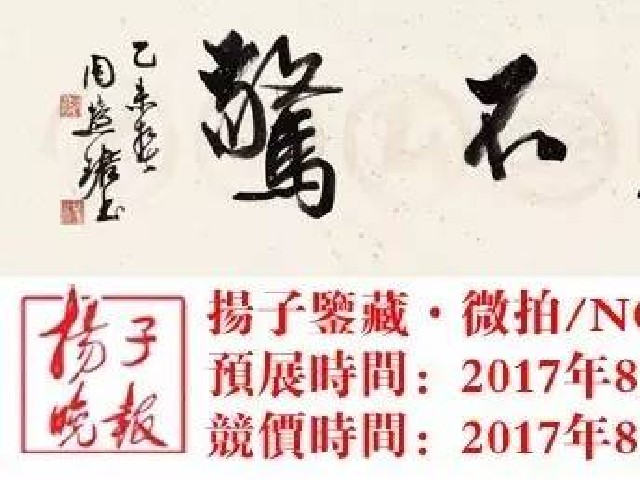 不驚
乙未
周慧珺书
揚子
晚報
揚子鑒藏·微拍/N
預展時間：2017年8
競價時間：2017年8